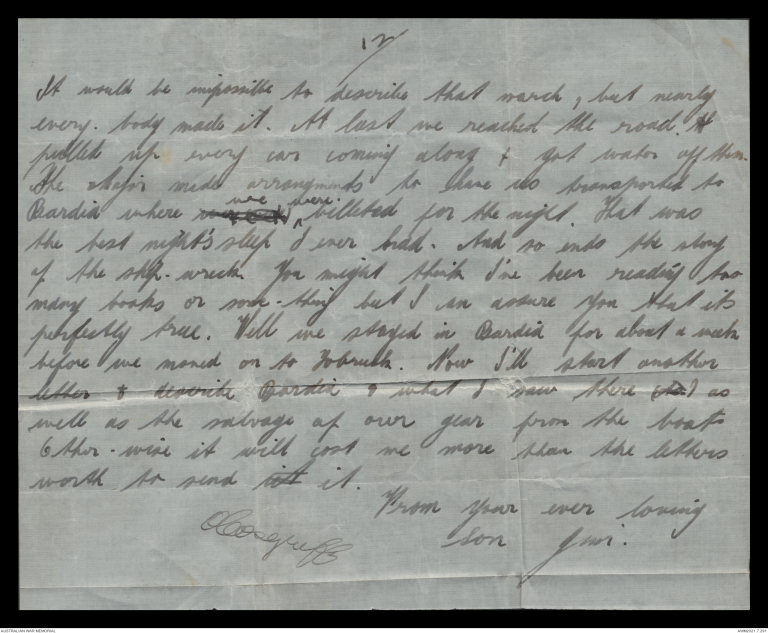 12/
It would be impossible to describe that march, but nearly
every-body made it. At last we reached the road. I
pulled up every car coming along & got water off them.
The Major made arrangments to have us transported to
Bardia where we were billeted for the night. That was
the best night's sleep I ever had. And so ends the story
of the ship-wreck. You might think I've been reading too
many books or som-thing but I can assure you that it's
perfectly true. Well we stayed in Bardia for about a week
before we moved on to Tobruck. Now I'll start another
letter & describe Bardia & what I saw there as
well as the salvage of our gear from the boat
Other-wise it will cost me more than the letters
worth to send it.
From your ever loving
Son
AUSTRALIAN WAR MEMORIAL